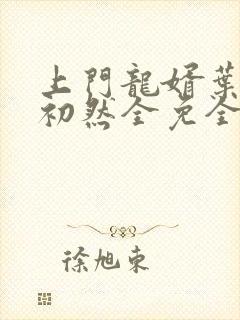 上門龍婿葉
初然全免全
徐旭東